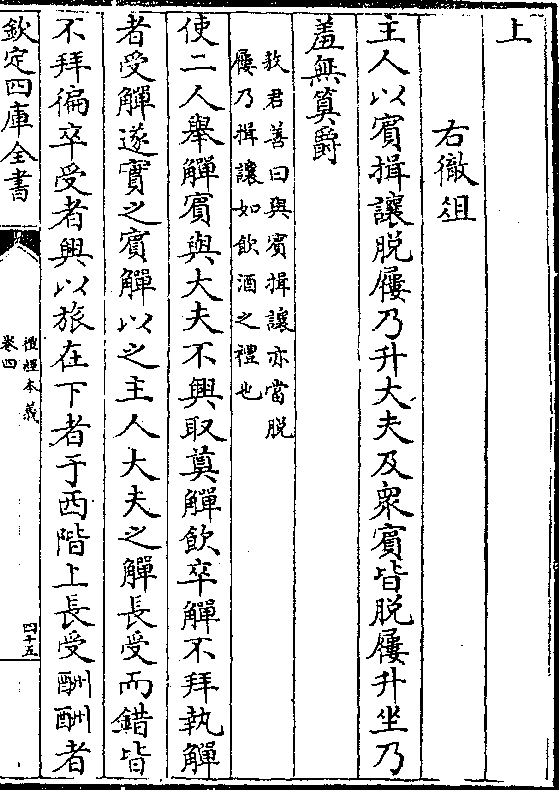 上
右徹俎
主人以賓揖讓脱屨乃升大夫及衆賓皆脱屨升坐乃
羞無筭爵
敖君善曰與賓揖讓亦當脱
屨乃揖讓如飲酒之禮也
使二人舉觶賓與大夫不興取奠觶飲卒觶不拜執觶
者受觶遂實之賓觶以之主人大夫之觶長受而錯皆
不拜徧卒受者興以旅在下者于西階上長受酬酬者
欽定四庫全書
禮經本義
卷四
四十五